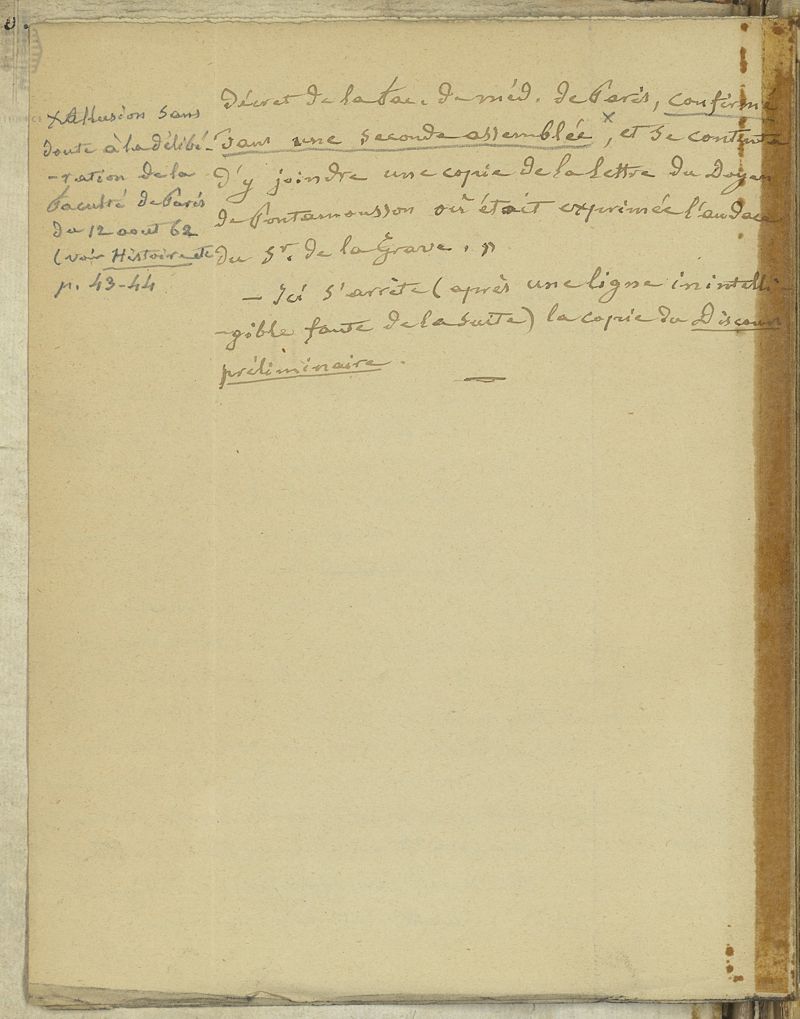 décret de la Fac. de méd. de Paris, confirmé
dans une seconde assemblée x, et se contenta
d'y joindre une copie de la lettre du Doyen
de Pontamousson où était exprimée l'audace
du Sr. de la Grave. »
— Ici s'arrête (après une ligne inintelli-
-gible faute de la suite) la copie du Discours
préliminaire.
x Allusion sans
doute à la délibé-
-ration de la
Faculté de Paris
du 12 aout 62
(voir Histoire etc
p. 43-44